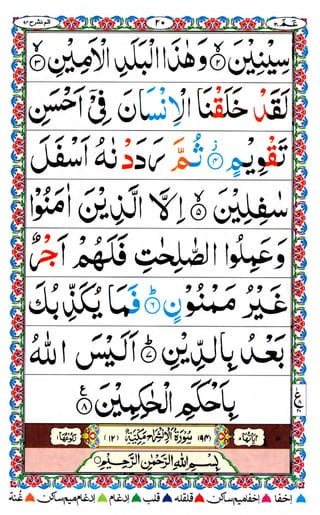 عمّ ٣٠ ٢٠ الم نشرح
سِيْنِيْنَ ۙ﴿۲﴾ وَهٰذَا الْبَلَدِ الْاَمِيْنِ ۙ﴿۳﴾
لَقَدْ خَلَقْنَا الْاِنْسَانَ فِيْۤ اَحْسَنِ
تَقْوِيْمٍ ۫﴿۴﴾ ثُمَّ رَدَدْ نٰهُ اَسْفَلَ
سٰفِلِيْنَ ۙ﴿۵﴾ اِلَّا الَّذِيْنَ اٰمَنُوْا
وَعَمِلُوا الصّٰلِحٰتِ فَلَهُمْ اَجْرٌ
غَيْرُ مَمْنُوْنٍ ؕ﴿۶﴾ فَمَا يُكَذِّبُكَ
بَعْدُ بِالدِّيْنِ ؕ﴿۷﴾ اَلَيْسَ اللّٰهُ
بِاَحْكَمِ الْحٰكِمِيْنَ ﴿۸﴾ ع
اٰیاتها (۹۴) سُوْرَةُ الْاِنْشِرَاحِ مَكِّيَّةٌ (۱۲) رکوعها
بِسْمِ اللّٰهِ الرَّحْمٰنِ الرَّحِيْمِ
اخفا اخفا میم ساکن قلقله قلب ادغام ادغام میم ساکن غنّه